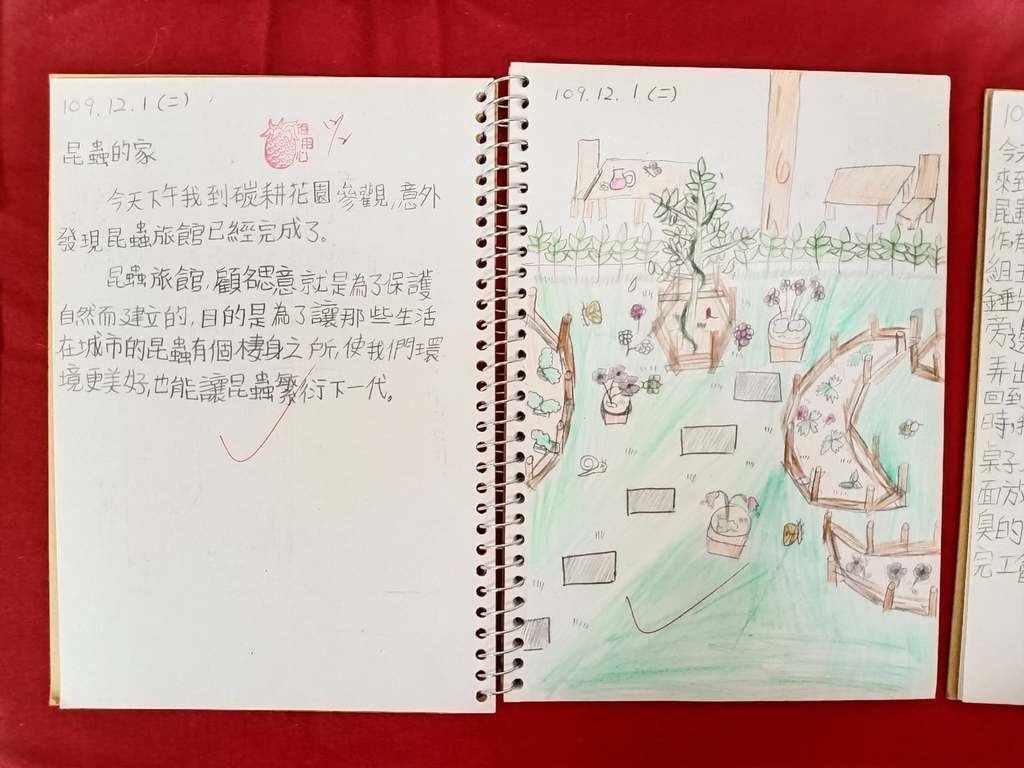 109.12.1(二)
昆蟲的家
用心
12/2
今天下午我到碳耕花園參觀,意外
發現昆蟲旅館已經完成了。
昆蟲旅館,顧名思意就是為了保護
自然而建立的,目的是為了讓那些生活
在城市的昆蟲有個棲身之所,使我們環
境更美好,也能讓昆蟲繁衍下一代。
109.12.1(二)
10
今天
來到
昆蟲
作有
組
錘
旁
弄出
回到
時,我
桌子
面放
臭的
完工